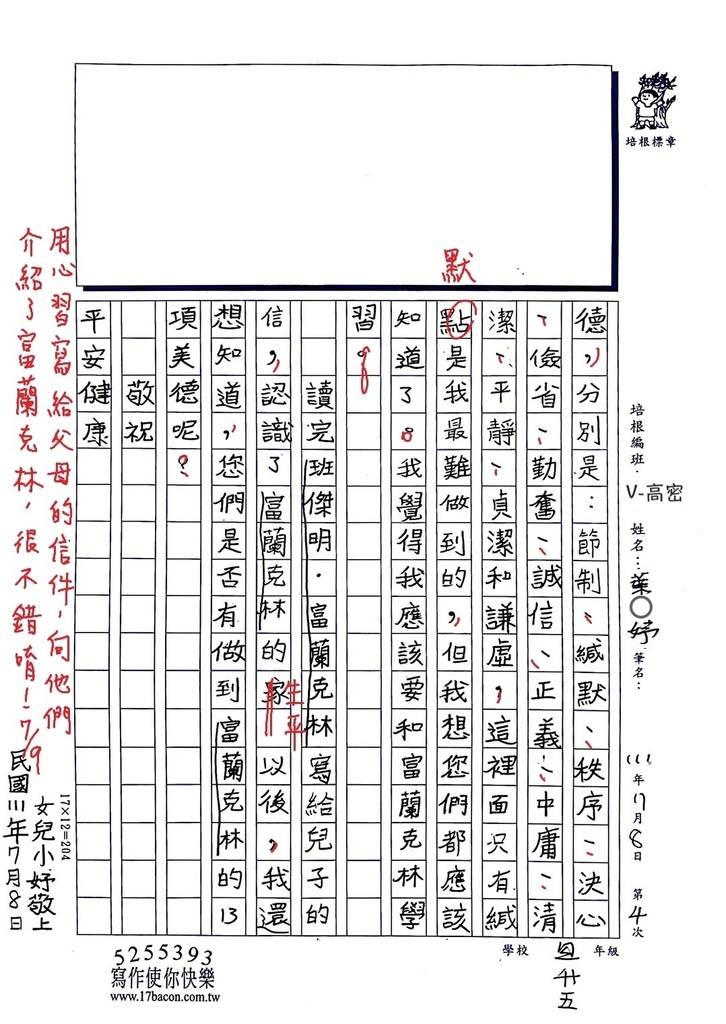 培根標章
培根編班：V-高密 姓名：葉○妤 筆名：
111年7月8日 第4次
學校 年級 四升五
德，分別是：節制、緘默、秩序、決心
、儉省、勤奮、誠信、正義、中庸、清
潔、平靜、貞潔和謙虛，這裡面只有緘
點是我最難做到的，但我想您們都應該
默
知道了。我覺得我應該要和富蘭克林學
習。
讀完班傑明．富蘭克林寫給兒子的
信，認識了富蘭克林的家以後，我還
生平
想知道，您們是否有做到富蘭克林的13
項美德呢？
敬祝
平安健康
17×12=204
女兒小妤敬上
民國111年7月8日
用心習寫給父母的信件，向他們
介紹了富蘭克林，很不錯唷！7/9
5255393
寫作使你快樂
www.17bacon.com.tw